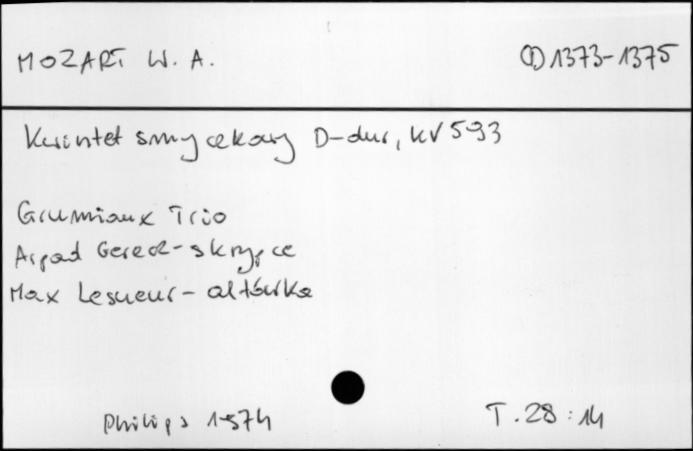 MOZART W. A.
CD 1373-1375
Kwintet smyczkowy D-dur, KV 593
Grumiaux Trio
Arpad Gerecz - skrzypce
Max Lesueur - altówka
Philips 1974
T. 28:14